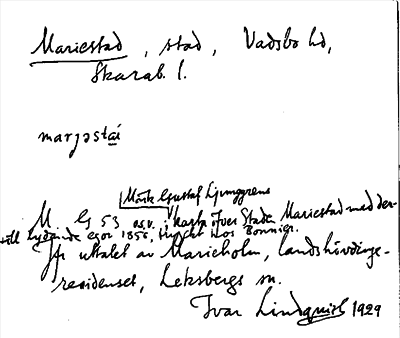 Mariestad, stad, Vadsbo hd,
Skarab. l.
marjəstai
Märk Gustaf Ljunggrens
M. G 53 os.v. i Karta öfver Staden Mariestad med der-
till lydande egor 1856, tryckt hos Bonnier.
Jfr uttalet av Marieholm, landshövdinge-
residenset, Leksbergs sn.
Ivar Lindquist 1929